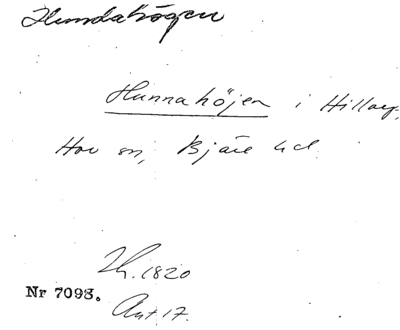 Hundahögen
Hunnahöjen i Hillarp,
Hov sn, Bjäre hd
Th. 1820
Nr 7093.
Ant. 17.